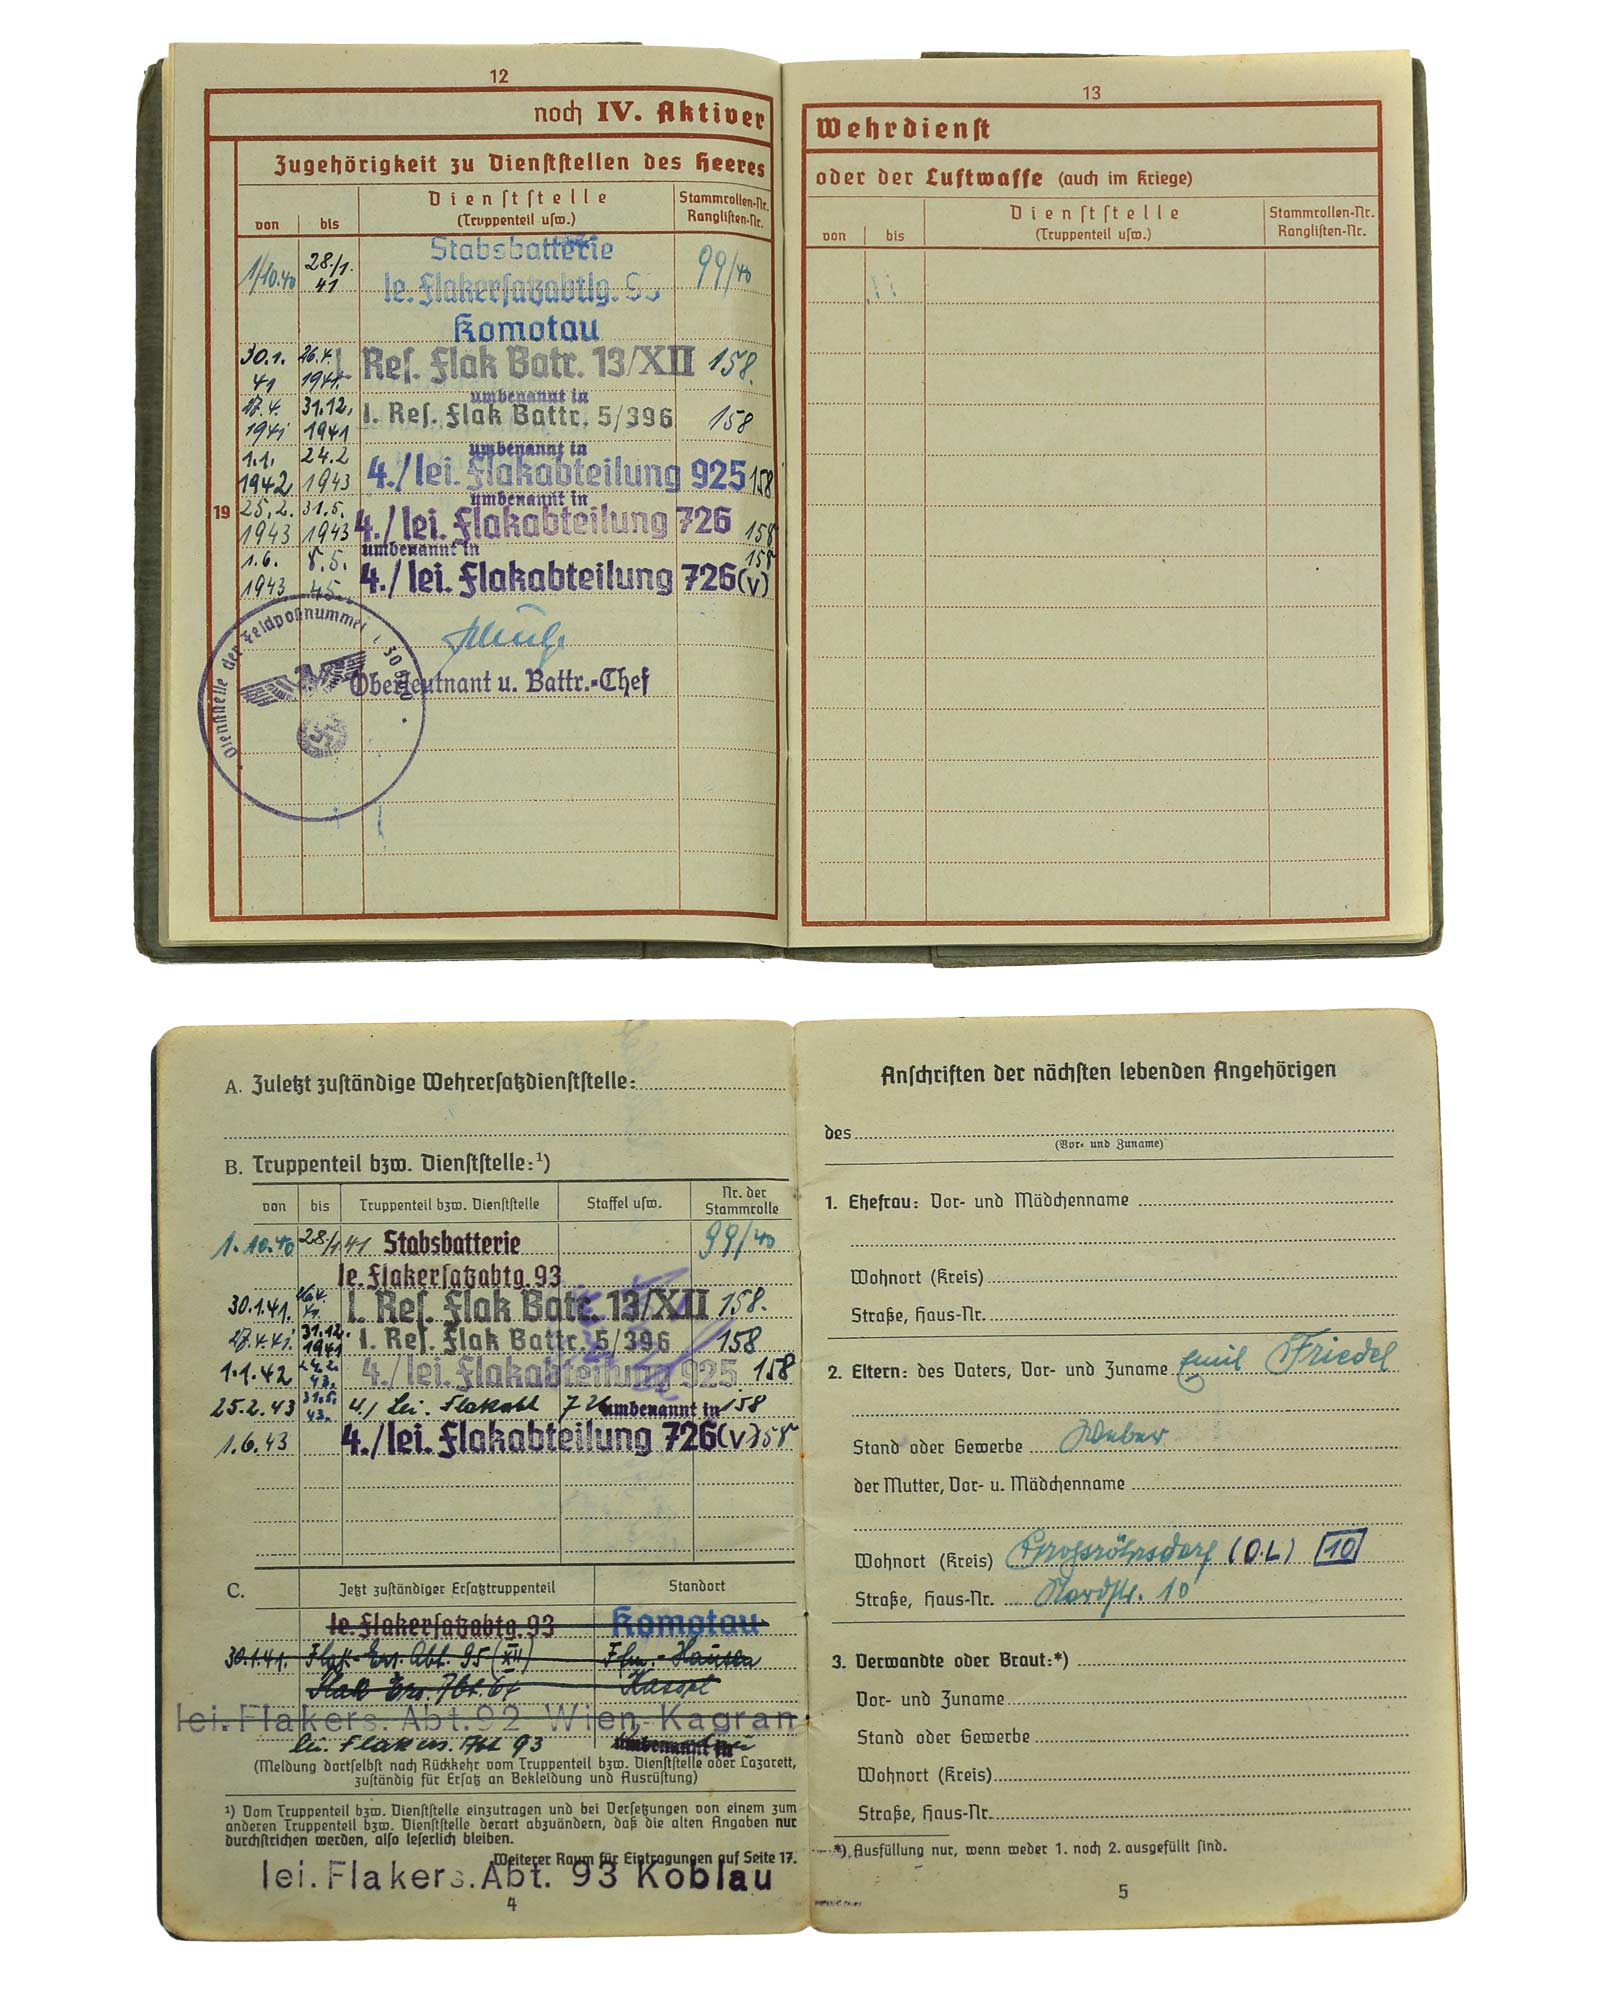 12
noch IV. Aktiver
Zugehörigkeit zu Dienststellen des Heeres
von bis Dienststelle (Truppenteil usw.) Stammrollen-Nr. Ranglisten-Nr.
Stabsbatterie
1/10.40 28./1. 41 le. Flakersatzabtlg. 93 99/40
Komotau
30.1. 41 26.4. 1941. l. Res. Flak Batr. 13/XII 158.
umbenannt in
27.4. 1941 31.12. 1941 l. Res. Flak Battr. 5/396 158
umbenannt in
1.1. 1942 24.2 1943 4./lei. Flakabteilung 925 158
umbenannt in
19 25.2. 1943 31.5. 1943 4./lei. Flakabteilung 726 158
umbenannt in
1.6. 1943 8.5. 45. 4./lei. Flakabteilung 726(v) 158
Oberleutnant u. Battr.-Chef
Dienststelle der Feldpostnummer L 30
13
Wehrdienst
oder der Luftwaffe (auch im Kriege)
von bis Dienststelle (Truppenteil usw.) Stammrollen-Nr. Ranglisten-Nr.
A. Zuletzt zuständige Wehrersatzdienststelle:
B. Truppenteil bzw. Dienststelle:¹)
von bis Truppenteil bzw. Dienststelle Staffel usw. Nr. der Stammrolle
1.10.40 28./1 41 Stabsbatterie 99/40
le. Flakersatzabtg. 93
30.1.41. 26.4. 41. l. Res. Flak Batr. 13/XII 158.
27.4.41. 31.12. 1941 l. Res. Flak Battr. 5/396 158
1.1.42 24.2. 43. 4./lei. Flakabteilung 925 158
25.2.43 31.5. 43. 4./ Lei. Flakabt 726 158
umbenannt in
1.6.43 4./lei. Flakabteilung 726(v) 158
C. Jetzt zuständiger Ersatztruppenteil Standort
le. Flakersatzabtg. 93 Komotau
30.1.41. Flak-Ers. Abt. 95 (XII) Ffm.-Hausen
Flak Ers. Abt. Kassel
lei. Flakers. Abt. 92 Wien-Kagran
lei. Flakers. Abt 93 umbenannt in
(Meldung dortselbst nach Rückkehr vom Truppenteil bzw. Dienststelle oder Lazarett,
zuständig für Ersatz an Bekleidung und Ausrüstung)
¹) Vom Truppenteil bzw. Dienststelle einzutragen und bei Versetzungen von einem zum
anderen Truppenteil bzw. Dienststelle derart abzuändern, daß die alten Angaben nur
durchstrichen werden, also leserlich bleiben.
Weiterer Raum für Eintragungen auf Seite 17.
lei. Flakers. Abt. 93 Koblau
4
Anschriften der nächsten lebenden Angehörigen
des
(Vor- und Zuname)
1. Ehefrau: Vor- und Mädchenname
Wohnort (Kreis)
Straße, Haus-Nr.
2. Eltern: des Vaters, Vor- und Zuname Emil Friedel
Stand oder Gewerbe Weber
der Mutter, Vor- u. Mädchenname
Wohnort (Kreis) Großröhrsdorf (O.L) 10
Straße, Haus-Nr. Nordstr. 10
3. Verwandte oder Braut:*)
Vor- und Zuname
Stand oder Gewerbe
Wohnort (Kreis)
Straße, Haus-Nr.
*) Ausfüllung nur, wenn weder 1. noch 2. ausgefüllt sind.
5